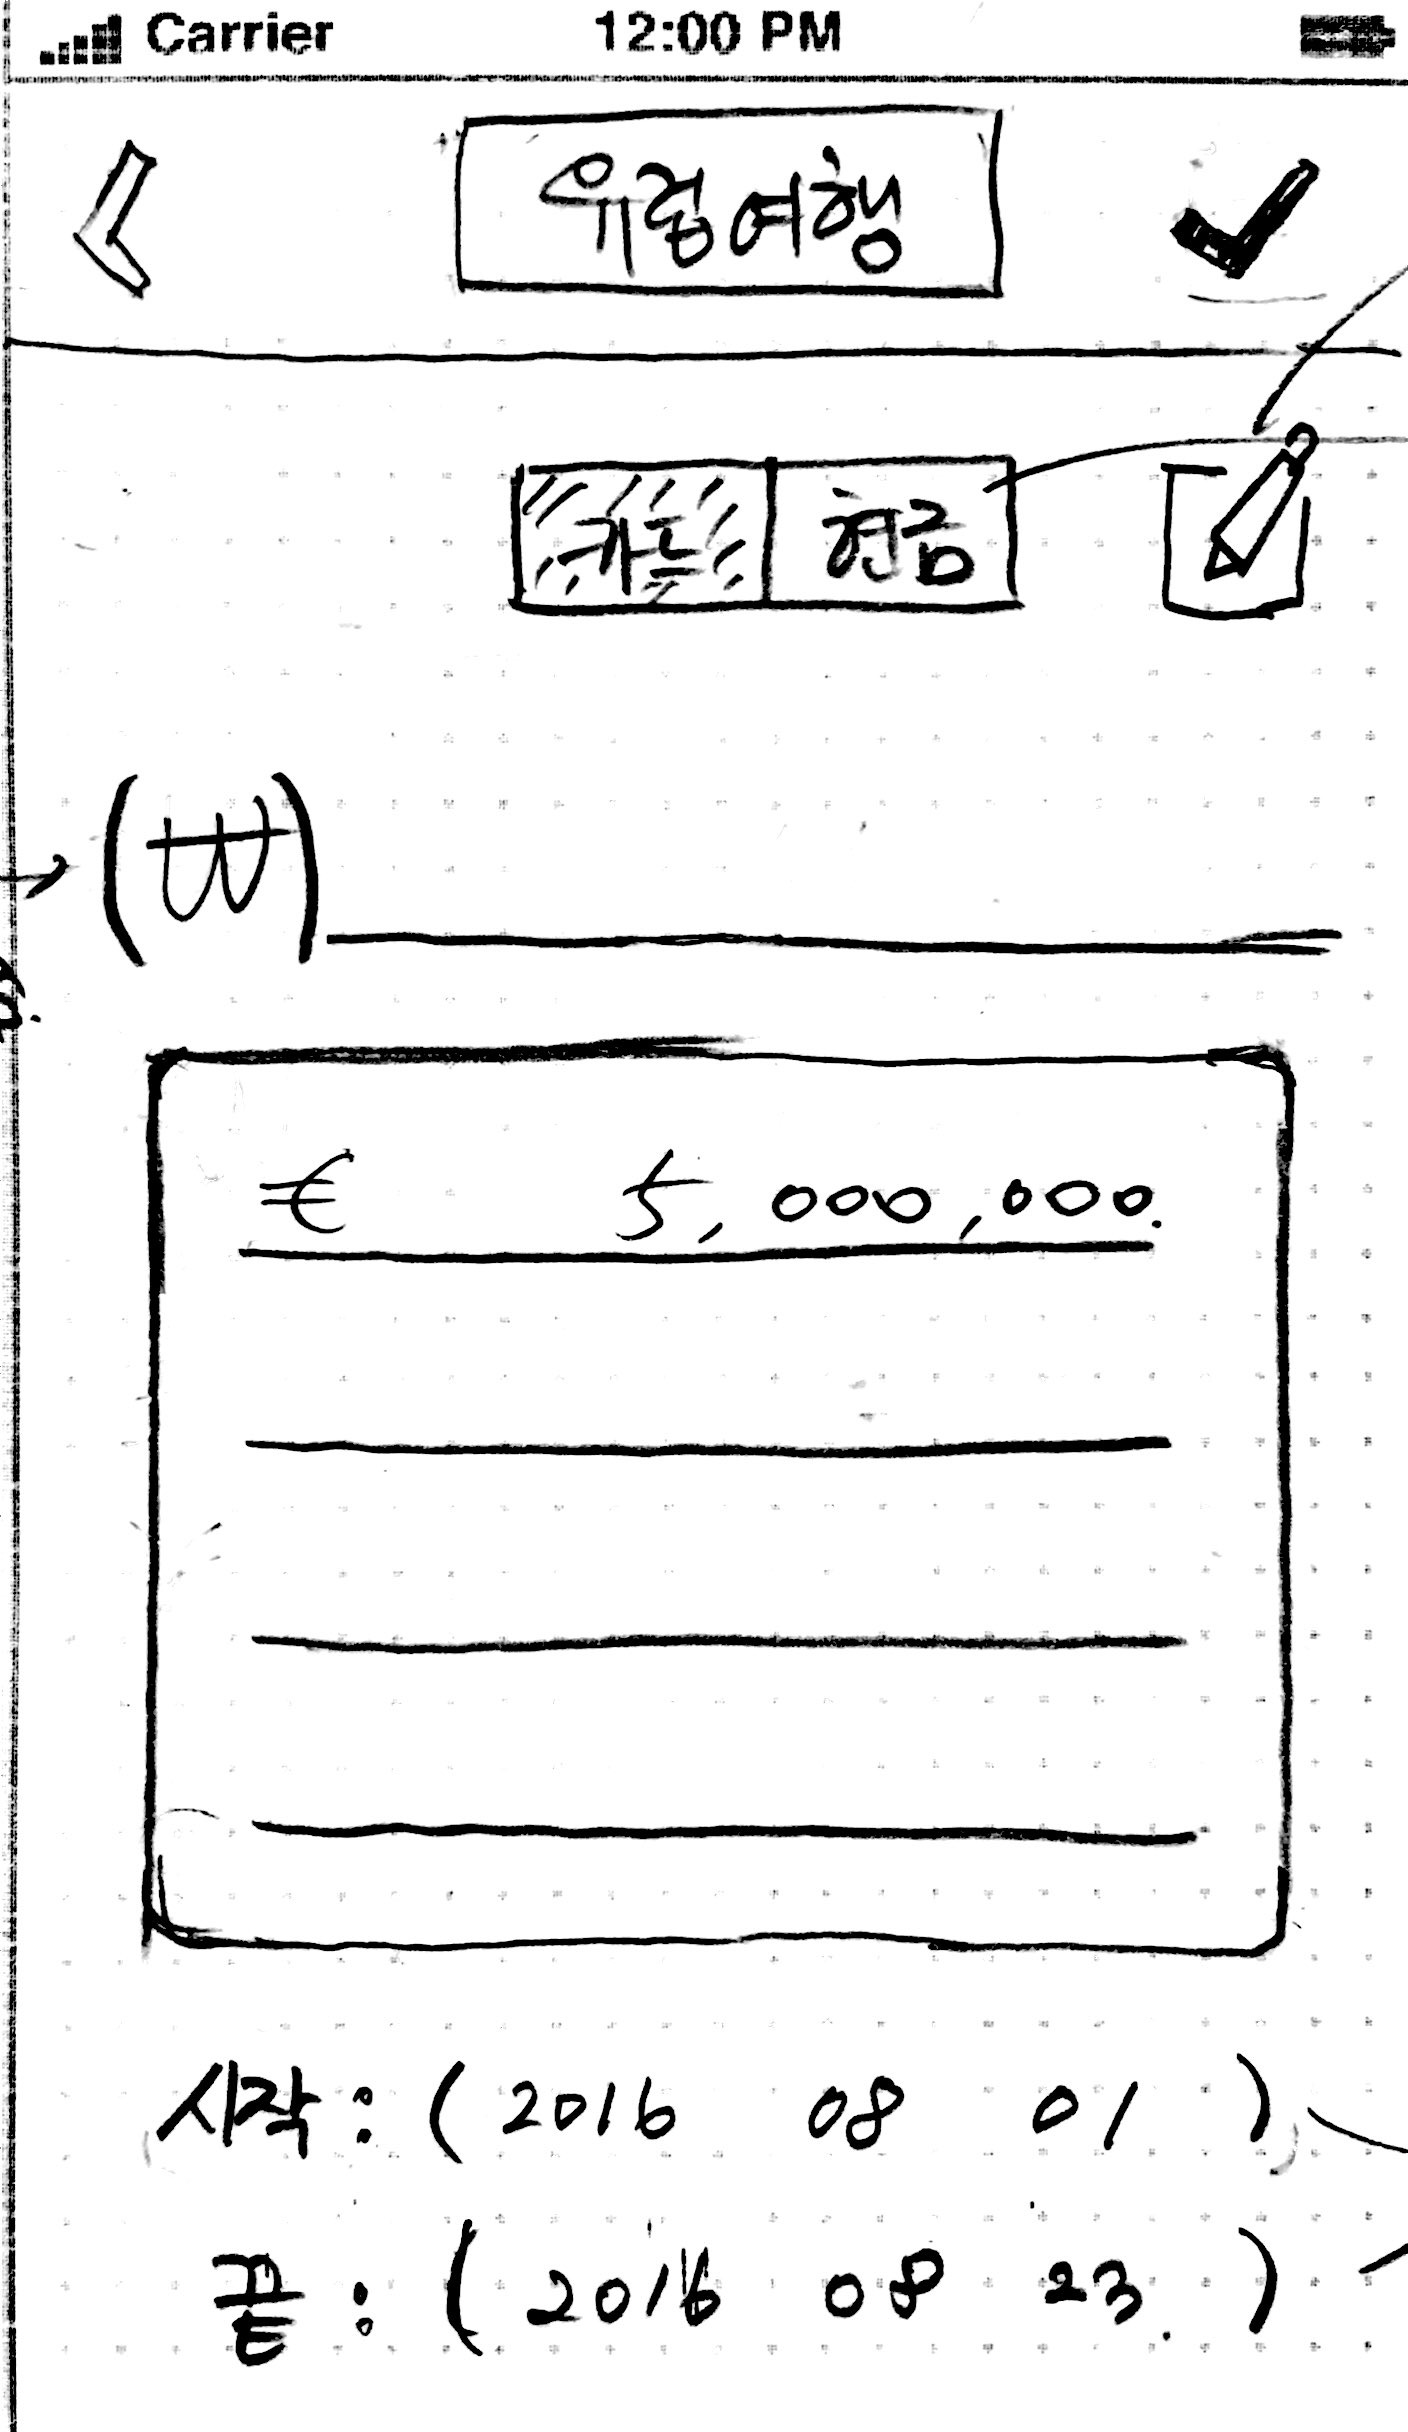 Carrier 12:00 PM
유럽여행
카드 현금
(₩)
€ 5,000,000.
시작: ( 2016 08 01 )
끝: ( 2016 08 23. )